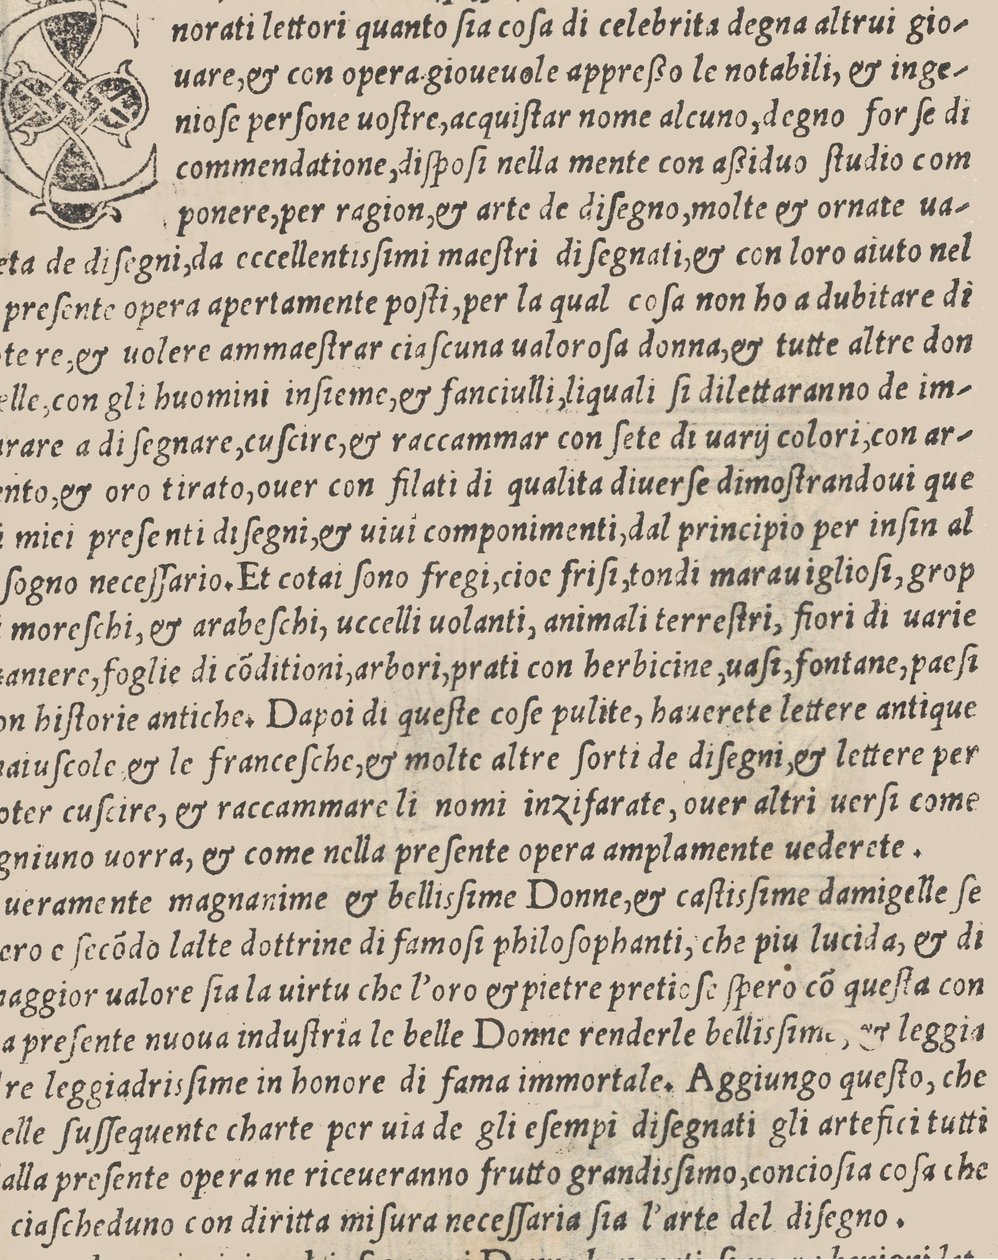 norati lettori quanto ſia coſa di celebrita degna altrui gio-
uare,& con opera gioueuole appreſſo le notabili, & inge-
nioſe perſone uoſtre,acquiſtar nome alcuno,degno for ſe di
commendatione,diſpoſi nella mente con aſſiduo ſtudio com
ponere,per ragion,& arte de diſegno,molte & ornate ua-
eta de diſegni,da eccellentisſimi maeſtri diſegnati,& con loro aiuto nel
preſente opera apertamente poſti,per la qual coſa non ho a dubitare di
tere,& uolere ammaeſtrar ciaſcuna ualoroſa donna,& tutte altre don
elle,con gli huomini inſieme,& fanciulli,liquali ſi dilettaranno de im-
arare a diſegnare,cuſcire,& raccammar con ſete di uarij colori,con ar-
ento,& oro tirato,ouer con filati di qualita diuerſe dimoſtrandoui que
i miei preſenti diſegni,& uiui componimenti,dal principio per inſin al
ſogno neceſſario.Et cotai ſono fregi,cioe friſi,tondi marauiglioſi,grop
i moreſchi,& arabeſchi, uccelli uolanti, animali terreſtri, fiori di uarie
aniere,foglie di cõditioni,arbori,prati con herbicine,uaſi,fontane,paeſi
on hiſtorie antiche. Dapoi di queſte coſe pulite, hauerete lettere antique
aiuſcole,& le franceſche,& molte altre ſorti de diſegni,& lettere per
oter cuſcire, & raccammare li nomi inzifarate, ouer altri uerſi come
gniuno uorra, & come nella preſente opera amplamente uederete.
ueramente magnanime & bellisſime Donne,& caſtisſime damigelle ſe
ero e ſecõdo lalte dottrine di famoſi philoſophanti, che piu lucida, & di
aggior ualore ſia la uirtu che l'oro & pietre pretioſe ſpero cõ queſta con
a preſente nuoua induſtria le belle Donne renderle bellisſime, & leggia
re leggiadrisſime in honore di fama immortale. Aggiungo queſto, che
elle ſuſſequente charte per uia de gli eſempi diſegnati gli artefici tutti
alla preſente opera ne riceueranno frutto grandisſimo,concioſia coſa che
ciaſcheduno con diritta miſura neceſſaria ſia l'arte del diſegno.